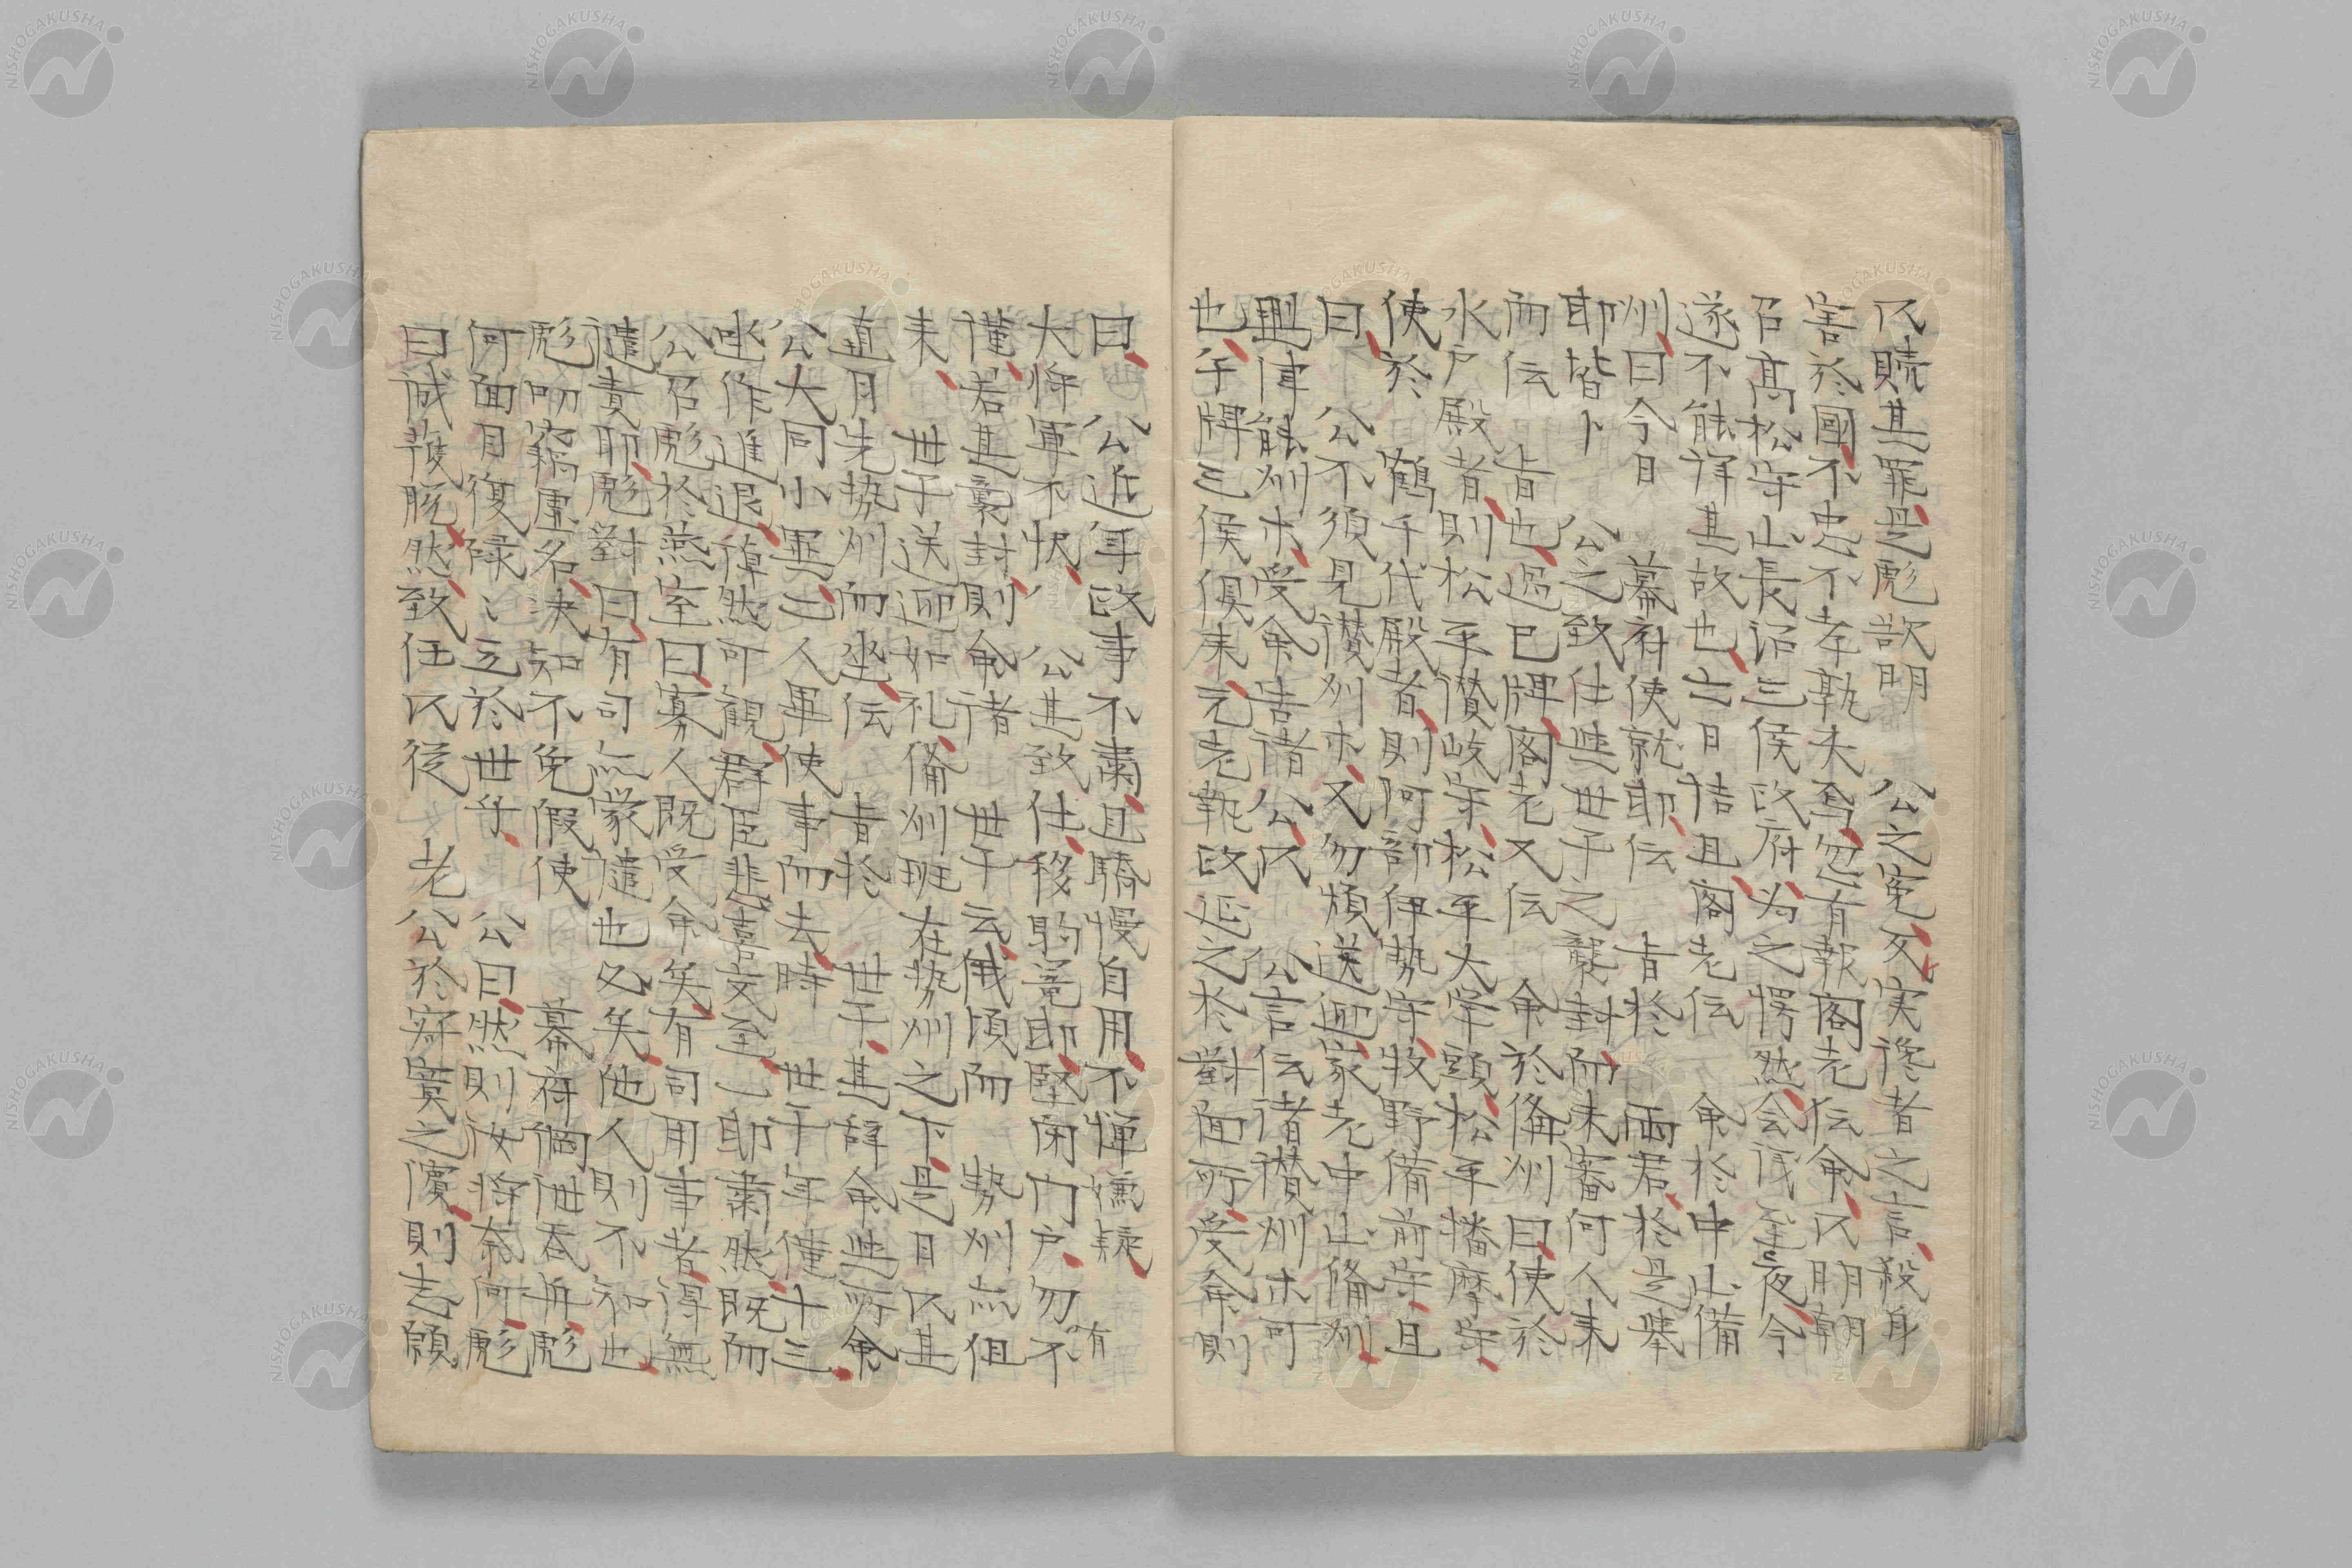 以贖其罪是彪欲明　公之寃反実讒者之言殺身
害於國不忠不孝孰大焉忽有報閣老伝命以明朝
召高松守山長沼三侯政府为之愕然会議至夜今
遂不能詳其故也六日詰旦閣老伝　命於中山備
州曰今日　幕府使就邸伝　旨於　両君於是挙
邸皆卜　公之致仕與世子之襲封而未審何人来
而伝　旨也過巳牌閣老又伝　命於備州曰使於
水戸殿者則松平讃岐守松平大学頭松平播摩守
使於　鶴千代殿者則阿部伊勢守牧野備前守且
曰　公不須見讃州等又勿煩送迎家老中山備州
興津能州等受命告諸　公以　公言伝諸讃州等可
也午牌三侯倶来元老執政延之於對面所受命則
曰　公近年政事不粛且驕慢自用不憚嫌疑　有
大将軍不怏　公其致仕移駒篭邸堅閉門戸勿不
僅若其襲封則命諸　世子云俄頃而　勢州亦伹
来　世子送迎如礼備州班在勢州之下是日以其
直月先勢州而坐伝　旨於　世子其辞命與所命
公大同小異三人畢使事而去時　世子年僅十三
坐作進退偉然可観群臣悲喜交至一邸粛然既而
公召彪於燕室曰寡人既受命矣有司用事者得無
譴責耶彪對曰有司亦蒙譴也必矣他人則不知也
彪叨竊虚名决知不免假使　幕府網泄呑舟彪
何面目復碌ミ立於世乎　公曰然則汝将奈何彪
曰誠獲脱然致仕以従　老公於寂寞之濱則志願